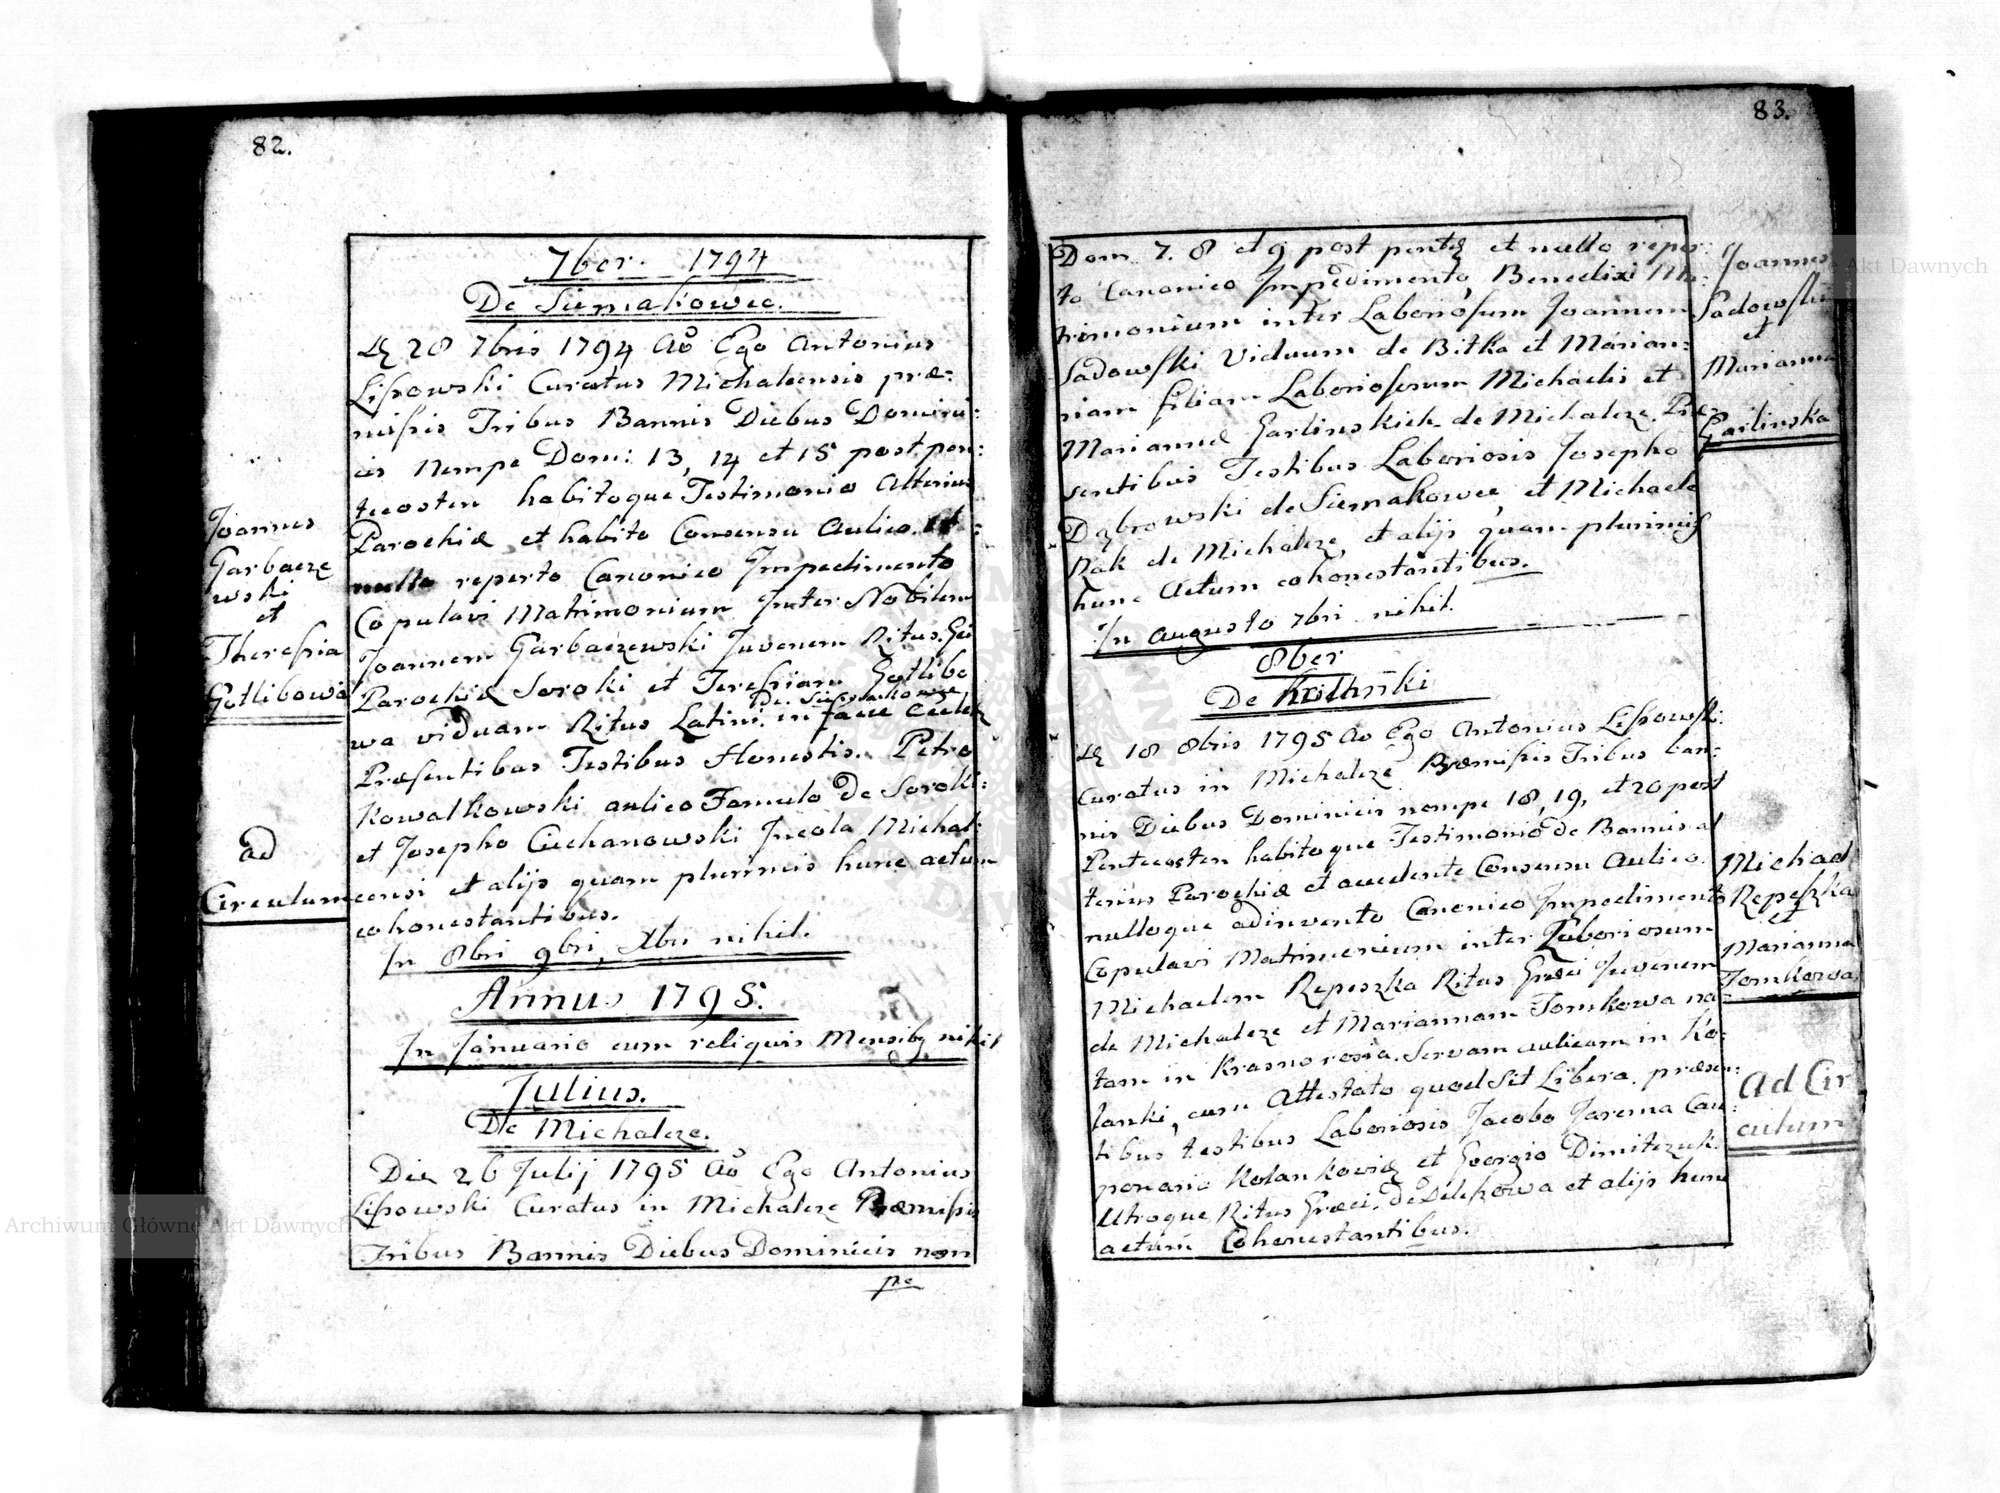 82.
7ber. 1794
De Siemakowce.
Dę 28 7bris 1794 Ao Ego Antonius
Lissowski Curatus Michalcensis præ=
missis Tribus Bannis Diebus Domini=
cis nempe Dom: 13, 14 et 15 post pen=
tecosten habitoque Testimonio Alterius
Parochiæ et habito Consensu Aulico. et
nullo reperto Canonico Impedimento
Copulavi Matrimonium Inter Nobilem
Joannem Garbaczewski Juvenem Ritus. Gci
Parochiæ Soroki et Teressiam Gotlibo
De Siemakowce
wa viduam Ritus Latini. in facie Eccles
Præsentibus Testibus Honestis. Petro
Kowalkowski aulico Famulo De Soroki=
et Josepho Ciechanowski Incola Michal:
censi et alijs quam plurimis hunc actum
cohonestantibus.
In 8bri 9bri, Xbri nihil.
Annus 1795.
In Januario cum reliquis Mensibq nihil
Julius.
De Michalcze.
Die 26 Julij 1795 Ao Ego Antonius
Lissowski Curatus in Michalcze Præmissis
Tribus Bannis Diebus Dominicis nem
pe
Joannes
Garbacze
wski
et
Theressia
Gotlibowa
ad
Circulum
83.
Dom 7. 8 et 9 post pentę et nullo reper=
to Canonico Impedimento, Benedixi Ma=
trimonium inter Laboriosum Joannem
Sadowski Viduum de Bitka et Marian=
nam filiam Laboriosorum Michaelis et
Mariannæ Garlinskich de Michalcze. Præ
sentibus Testibus Laboriosis Josepho
Dąbrowski de Siemakowce, et Michaele
Rak de Michalcze, et alijs quam plurimis
hunc Actum cohonestantibus.
In augusto 7bri nihil.
8ber
De
Dę 18 8bris 1795 Ao Ego Antonius Lissowski
Curatus in Michalcze Præmissis Tribus ban=
nis Diebus Dominicis nempe 18, 19, et 20 post
Pentecosten habitoque Testimonio de Bannis al
terius Parochiæ et accedente Consensu Aulico.
nulloque adinvento Canonico Impedimento
Copulavi Matrimonium inter Laboriosum
Michaelem Repeszka Ritus Græci Juvenem
de Michalcze et Mariannam Tomkowa na=
tam in Krasnorosia. Servam aulicam in Ko=
lanki, cum Attestato quod Sit Libera. præsen=
tibus testibus Laboriosis Jacobo Jarema Cau=
ponario Kolankovię et Georgio Dimitrzuk.
Utroque Ritus Græci. De et alijs hunc
actum Cohonestantibus.
Joannes
Sadowski
et
Marianna
Garlinska
Michael
Repeszka
et
Marianna
Tomkowa
ad Cir
culum
Archiwum Główne Akt Dawnych